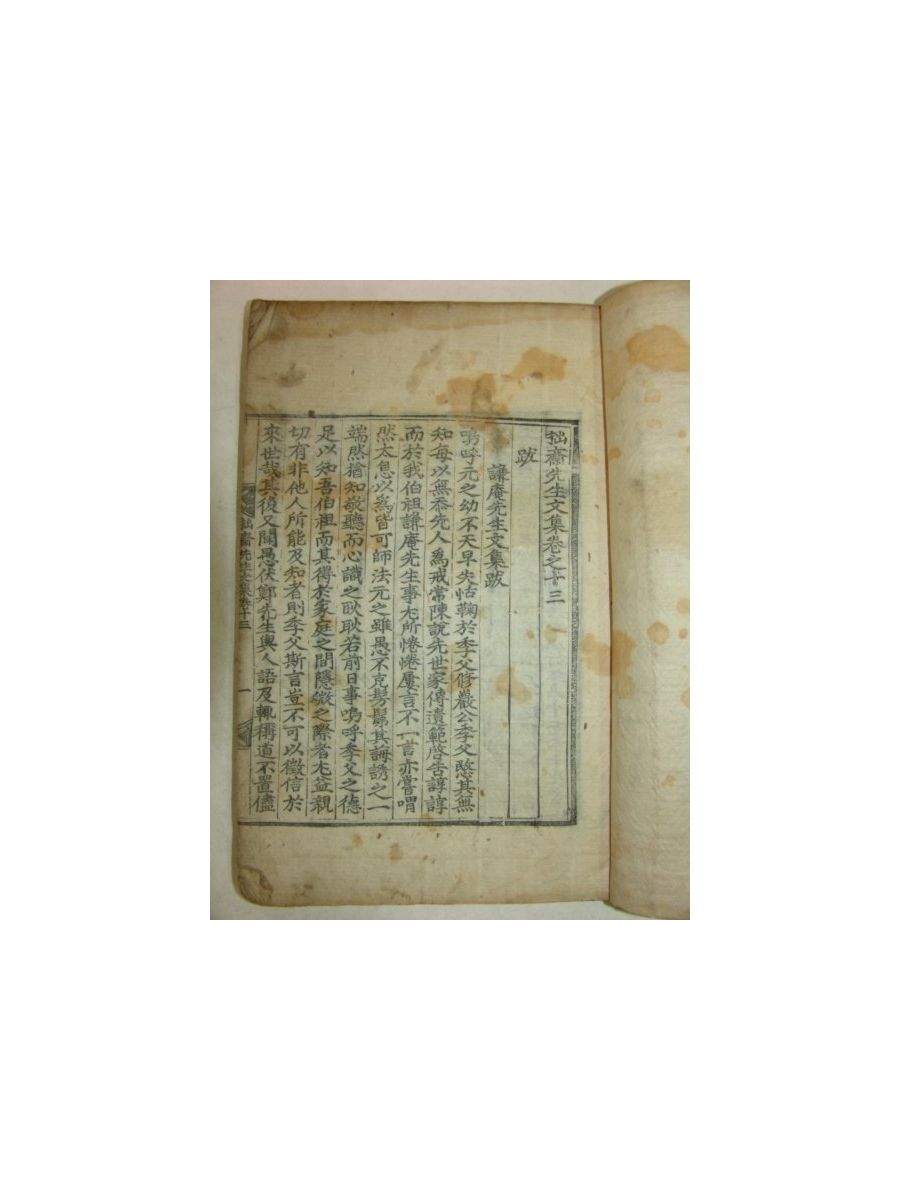 拙齋先生文集卷之十三
跋
謙庵先生文集跋
嗚呼元之幼不天早失怙鞠於季父修巖公季父愍其無
知每以無忝先人爲戒常陳說先世家傳遺範啓告諄諄
而於我伯祖謙庵先生事尤所惓惓屢言不一言亦嘗喟
然太息以爲皆可師法元之雖愚不克髣髴其誨誘之一
端然猶知敬聽而心識之耿耿若前日事嗚呼季父之德
足以知吾伯祖而其得於家庭之間隱微之際者尤益親
切有非他人所能及知者則季父斯言豈不可以徵信於
來世哉其後又聞愚伏鄭先生與人語及輒稱道不置儘
拙齋先生文集卷十三 一